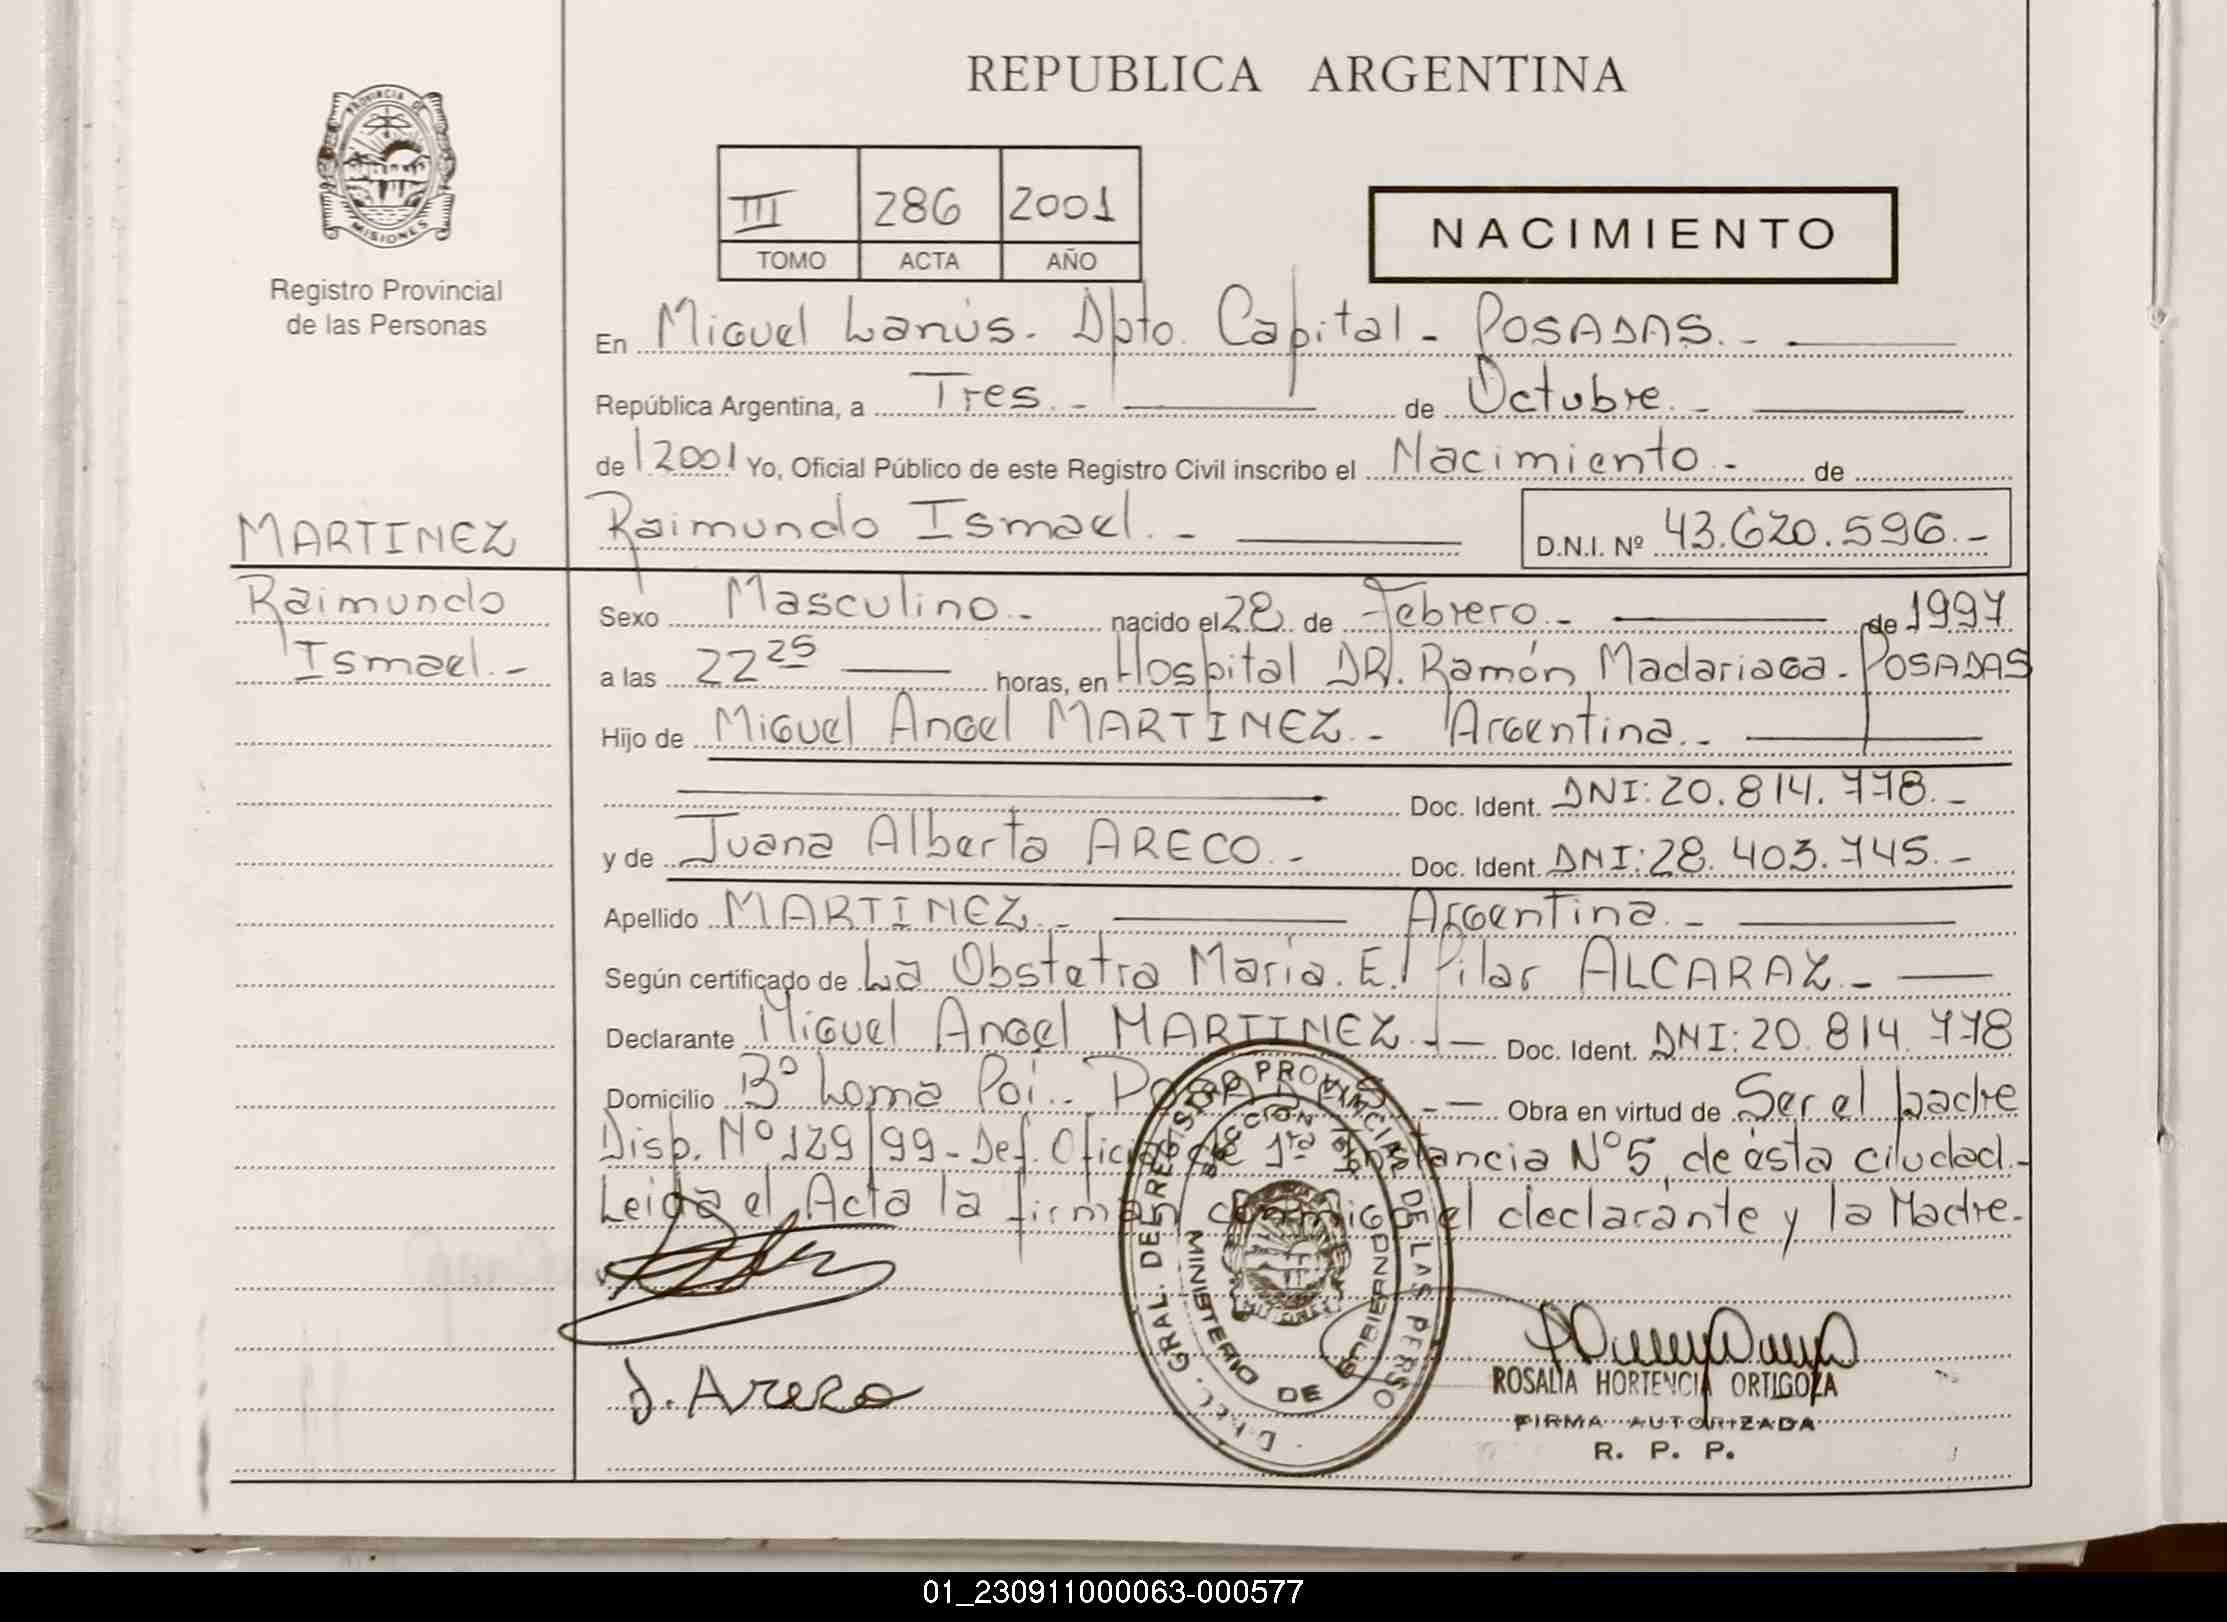 REPUBLICA ARGENTINA
PROVINCIA DE
MISIONES
Registro Provincial
de las Personas
III 286 2001
TOMO ACTA AÑO
NACIMIENTO
En Miguel Lanús. Dpto. Capital - POSADAS. -
República Argentina, a Tres. - de Octubre. -
de 2001 Yo, Oficial Público de este Registro Civil inscribo el Nacimiento. - de
MARTINEZ
Raimundo
Ismael. -
Raimundo Ismael. - D.N.I. Nº 43.620.596. -
Sexo Masculino. - nacido el 28 de Febrero. - de 1997
a las 22 25 horas, en Hospital DR. Ramón Madariaga - POSADAS
Hijo de Miguel Angel MARTINEZ. - Argentina. -
Doc. Ident. DNI: 20.814.778. -
y de Juana Alberta ARECO. - Doc. Ident. DNI: 28.403.745. -
Apellido MARTINEZ. - Argentina. -
Según certificado de La Obstetra Maria. E. Pilar ALCARAZ. -
Declarante Miguel Angel MARTINEZ. - Doc. Ident. DNI: 20.814.778
Domicilio Bº Loma Poi. - POSADAS. - Obra en virtud de Ser el padre
Disp. Nº 129/99 - Def. Oficial de 1ra Instancia Nº 5 de ésta ciudad. -
Leida el Acta la firman conmigo el declarante y la Madre. -
J. Areco
DIREC. GRAL. DEL REGISTRO PROVINCIAL DE LAS PERSO
MINISTERIO DE GOBIERNO
ROSALIA HORTENCIA ORTIGOZA
FIRMA AUTORIZADA
R. P. P.
01_230911000063-000577